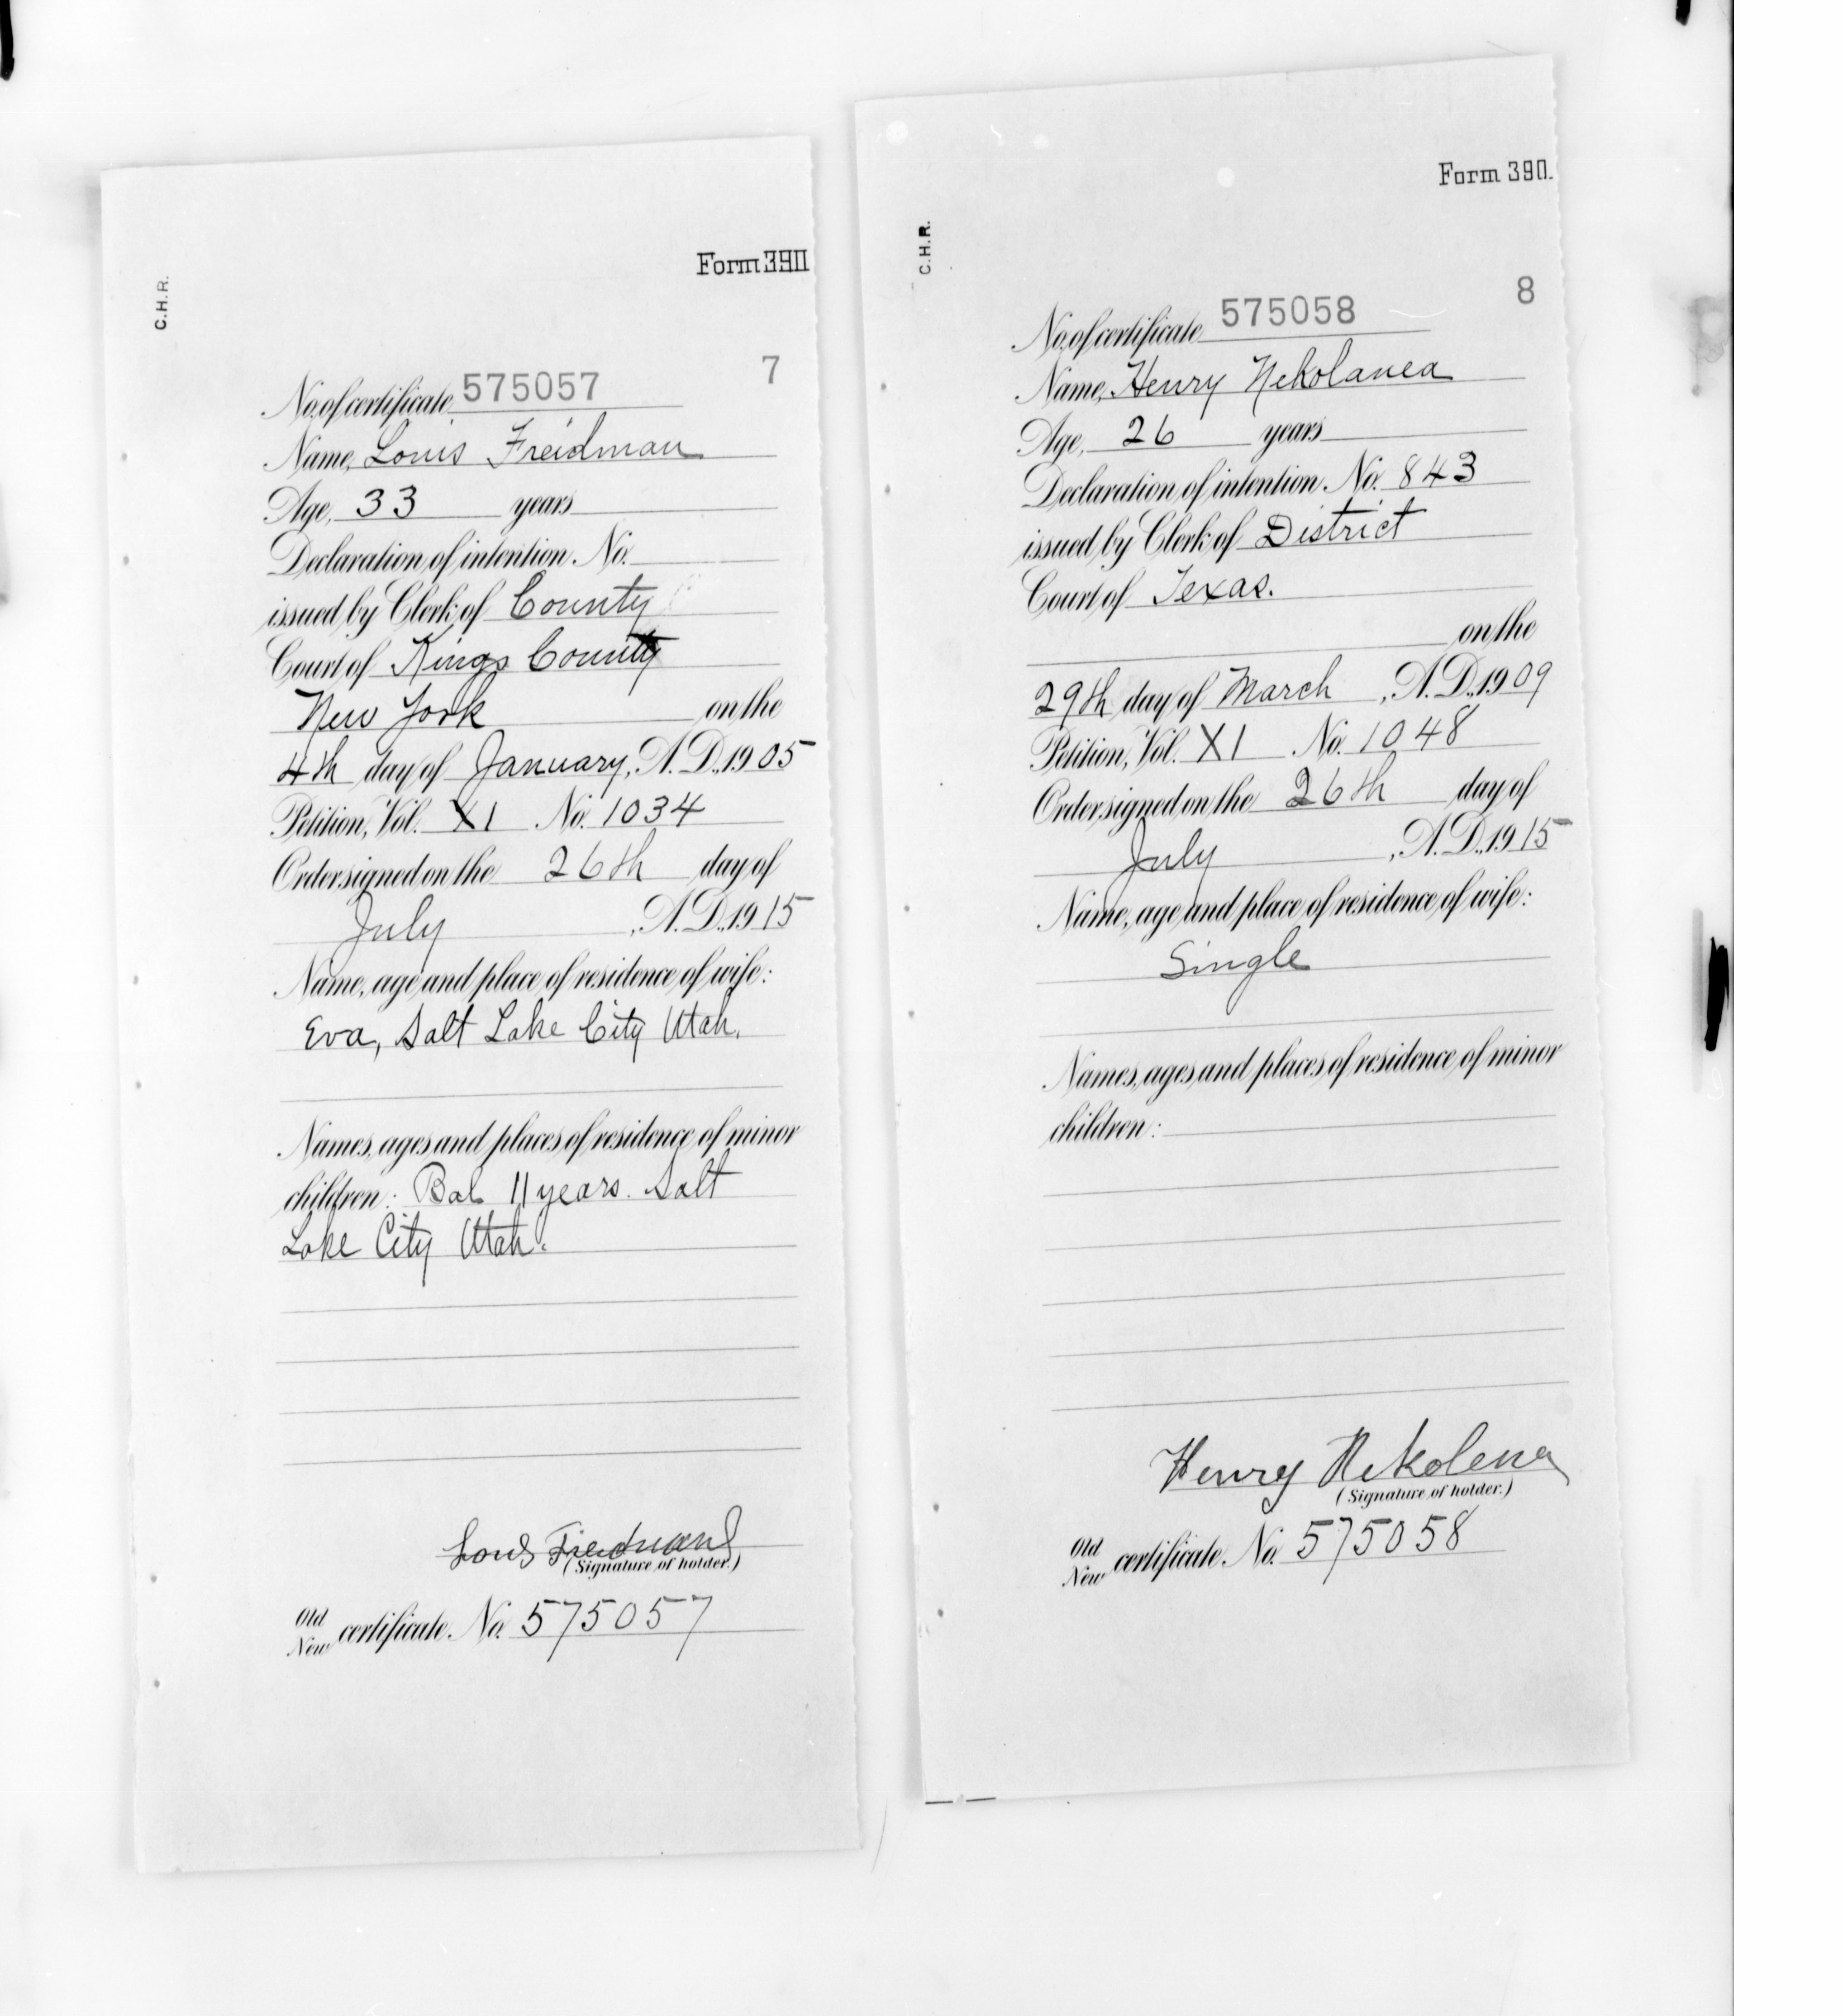 C.H.R.
Form 390
7
No. of certificate 575057
Name, Louis Freidman
Age, 33 years
Declaration of intention No.
issued by Clerk of County
Court of Kings County
New York on the
4th day of January, A.D., 1905
Petition, Vol. XI No. 1034
Order signed on the 26th day of
July, A.D., 1915
Name, age and place of residence of wife:
Eva, Salt Lake City Utah.
Names, ages and places of residence of minor
children: Bal 11 years. Salt
Lake City Utah.
Louis Friedman
(Signature of holder.)
Old
New certificate No. 575057
C.H.R.
Form 390.
8
No. of certificate 575058
Name, Henry Nekolanea
Age, 26 years
Declaration of intention No. 843
issued by Clerk of District
Court of Texas.
on the
29th day of March, A.D., 1909
Petition, Vol. XI No. 1048
Order signed on the 26th day of
July, A.D., 1915
Name, age and place of residence of wife:
Single
Names, ages and places of residence of minor
children:
Henry Nekolena
(Signature of holder.)
Old
New certificate No. 575058